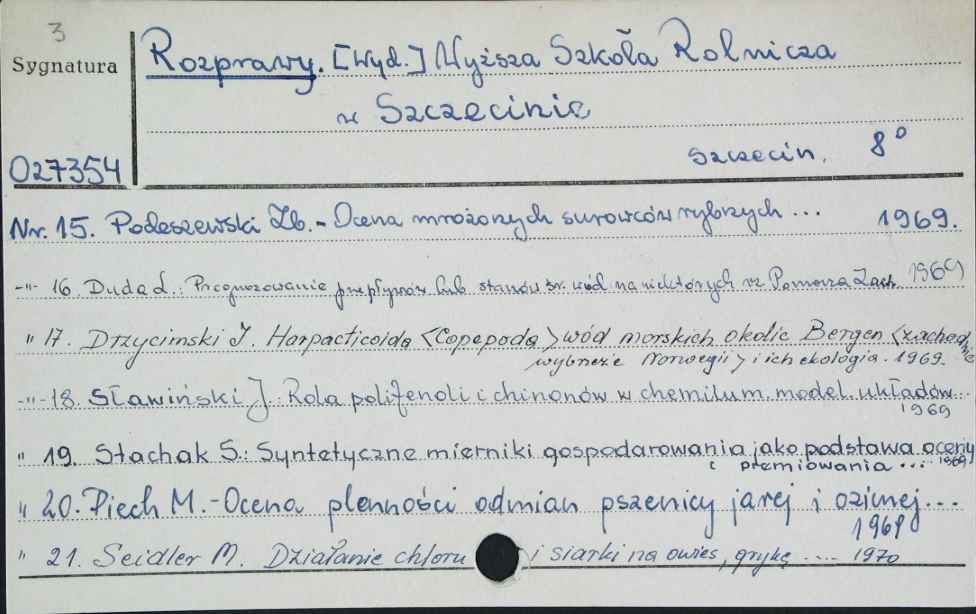 3
Sygnatura
Rozprawy. [Wyd.] Wyższa Szkoła Rolnicza
w Szczecinie
Szczecin. 8°
027354
Nr. 15. Podeszewski Zb. - Ocena mrożonych surowców rybnych ... 1969.
-"- 16. Duda L.: Prognozowanie przepływów lub stanów śr. wód na niektórych rz. Pomorza Zach. 1969
" 17. Drzycimski I. Harpacticoida <Copepoda> wód morskich okolic Bergen <zachod.
wybrzeże Norwegii> i ich ekologia. 1969.
-"- 18. Sławiński J.: Rola polifenoli i chinonów w chemilum. model. układów...
1969
" 19. Stachak S.: Syntetyczne mierniki gospodarowania jako podstawa oceny
i premiowania ... 1969
" 20. Piech M. - Ocena plenności odmian pszenicy jarej i ozimej...
1969
" 21. Seidler M. Działanie chloru i siarki na owies, grykę .... 1970